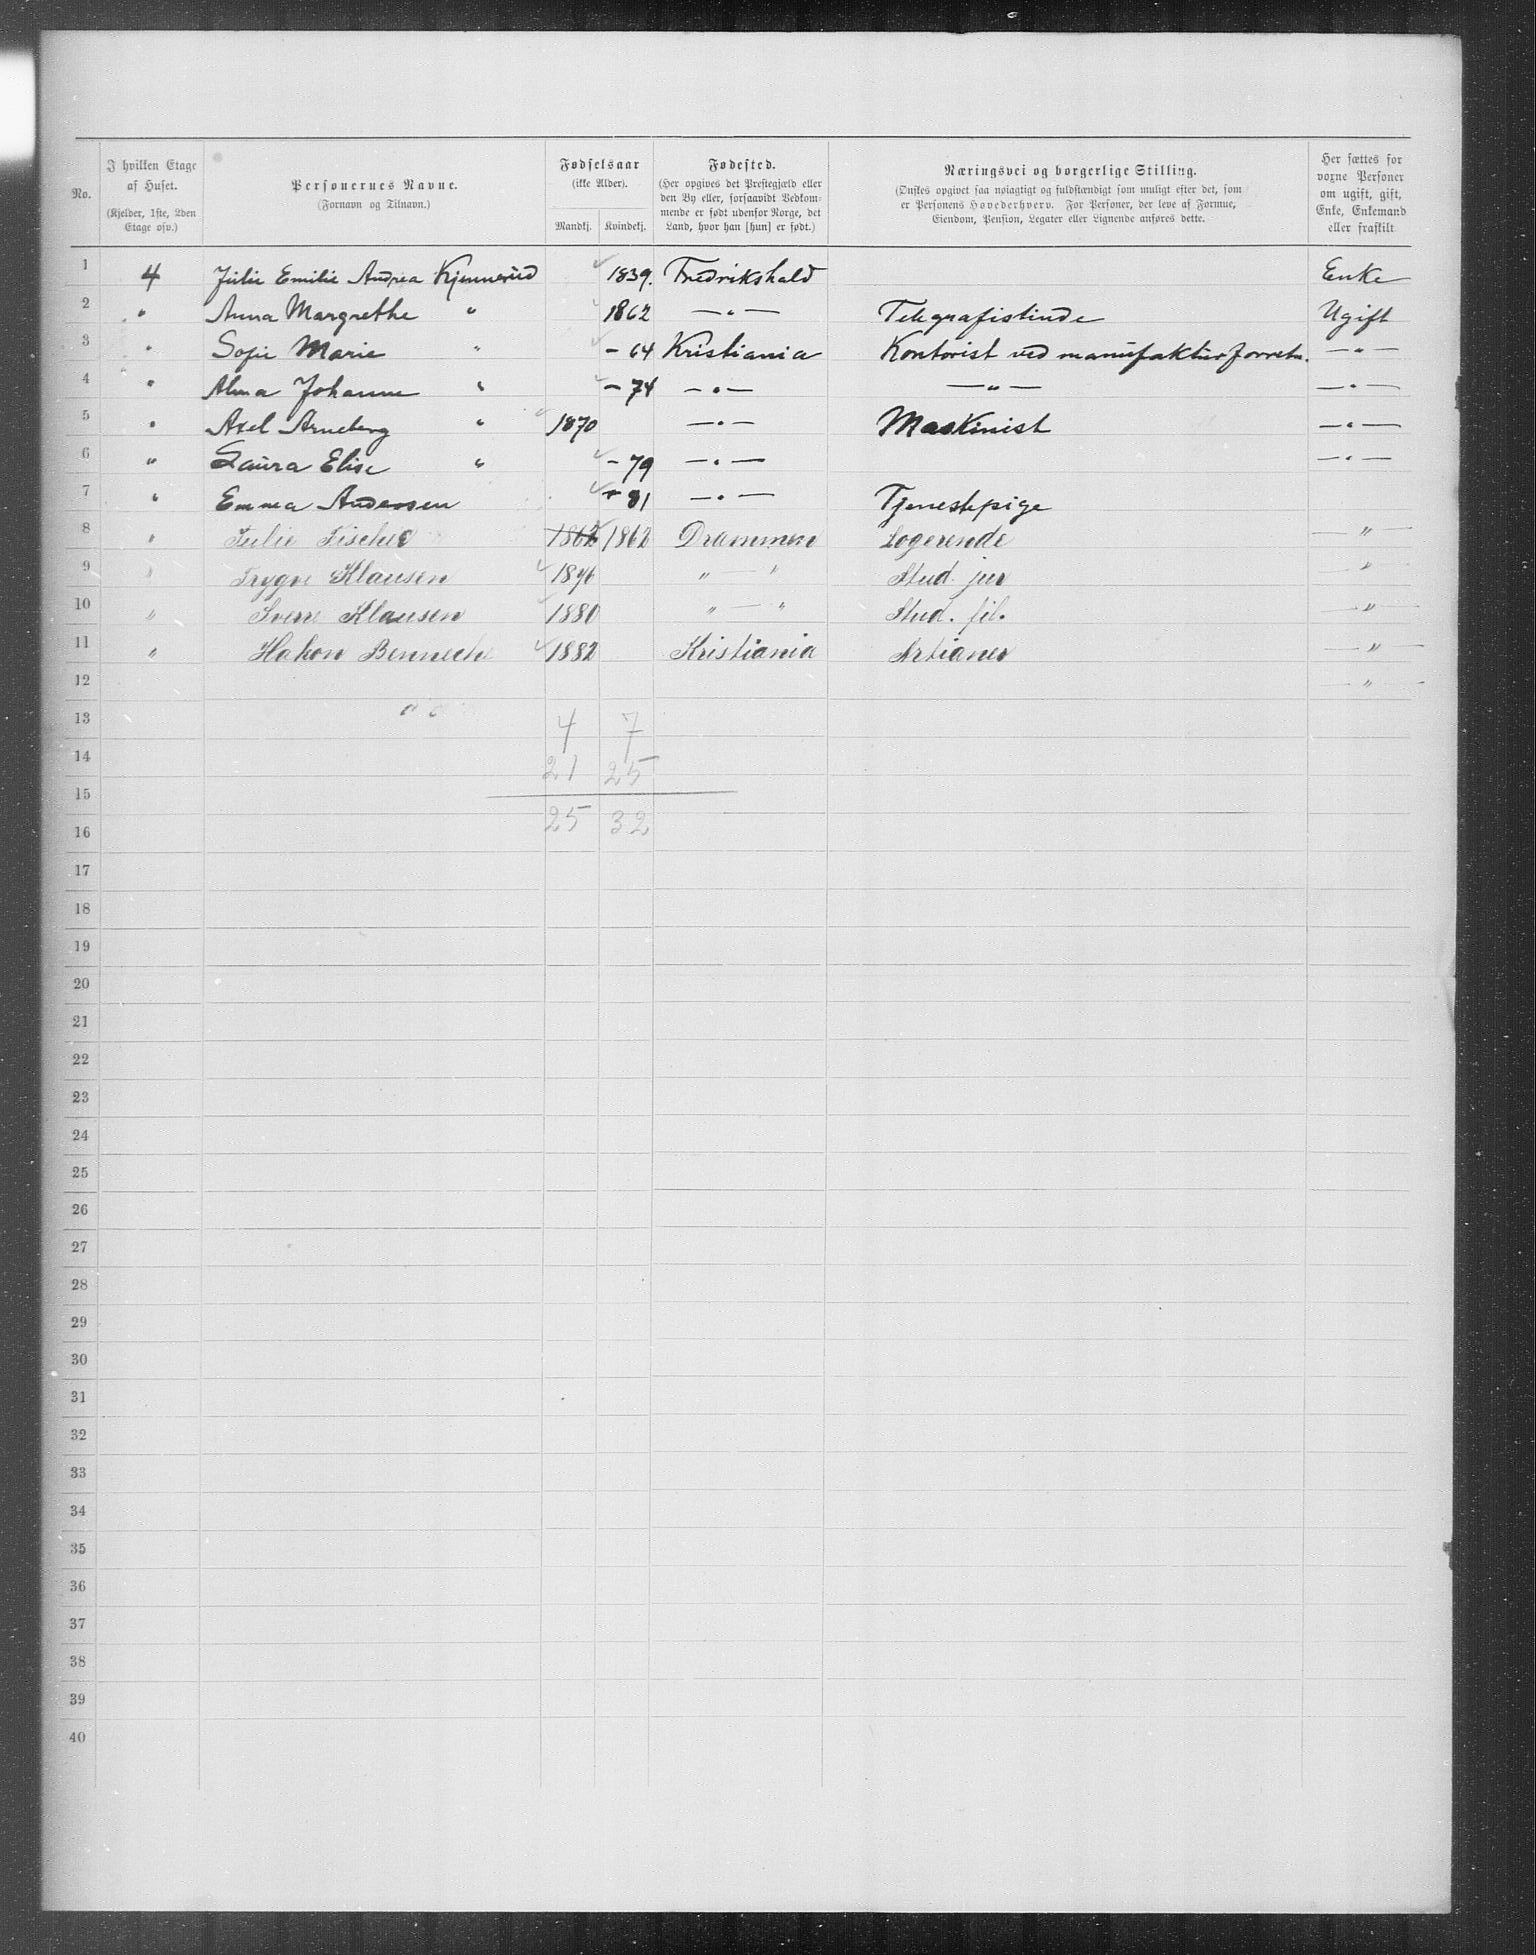 No.
I hvilken Etage af Huset.
(Kjelder, 1ste, 2den Etage osv.)
Personernes Navne.
(Fornavn og Tilnavn.)
Fødselsaar
(ikke Alder).
Mandkj. Kvindekj.
Fødested.
(Her opgives det Prestegjæld eller
den By eller, forsaavidt Vedkom-
mende er født udenfor Norge, det
Land, hvor han [hun] er født.)
Næringsvei og borgerlige Stilling.
(Ønskes opgivet saa nøiagtigt og fuldstændigt som muligt efter det, som
er Personens Hovederhverv. For Personer, der leve af Formue,
Eiendom, Pension, Legater eller Lignende anføres dette.
Her sættes for
voxne Personer
om ugift, gift,
Enke, Enkemand
eller fraskilt
1 4 Julie Emilie Andrea Kjennerud 1839. Fredrikshald Enke
2 " Anna Margrethe " 1862 — " — Telegrafistinde Ugift
3 " Sofie Marie " - 64 Kristiania Kontorist ved manufakturforretn. — " —
4 " Alma Johanne " - 74 — " — — " — — " —
5 " Axel Arneberg " 1870 — " — Maskinist — " —
6 " Laura Elise " - 79 — " — — " —
7 " Emma Andersen - 81 — " — Tjenestepige
8 " Julie Fischer 1862 1862 Drammen Logerende — " —
9 " Trygve Klausen 1876 " — " Stud. jur — " —
10 " Sverre Klausen 1880 " — " Stud. fil. — " —
11 " Hakon Bennech 1882 Kristiania Artianer — " —
12 — " —
13 4 7
14 21 25
15
16 25 32
17
18
19
20
21
22
23
24
25
26
27
28
29
30
31
32
33
34
35
36
37
38
39
40